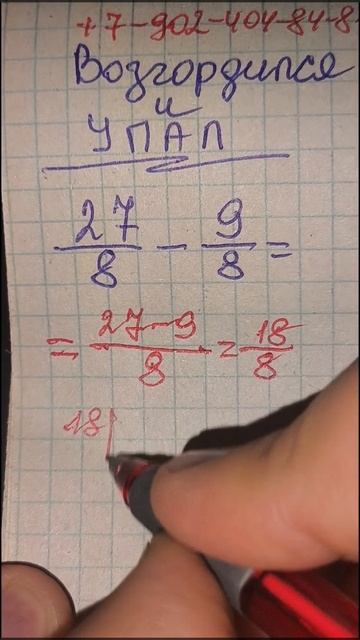 +7-902-404-84-8
Возгордился
и
УПАЛ
27/8 - 9/8 =
= 27-9/8 = 18/8
18